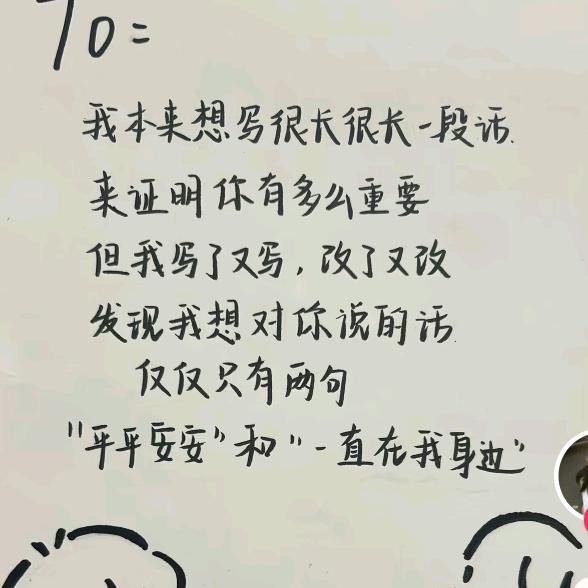 To:
我本来想写很长很长一段话.
来证明你有多么重要
但我写了又写,改了又改
发现我想对你说的话.
仅仅只有两句
"平平安安"和"一直在我身边"